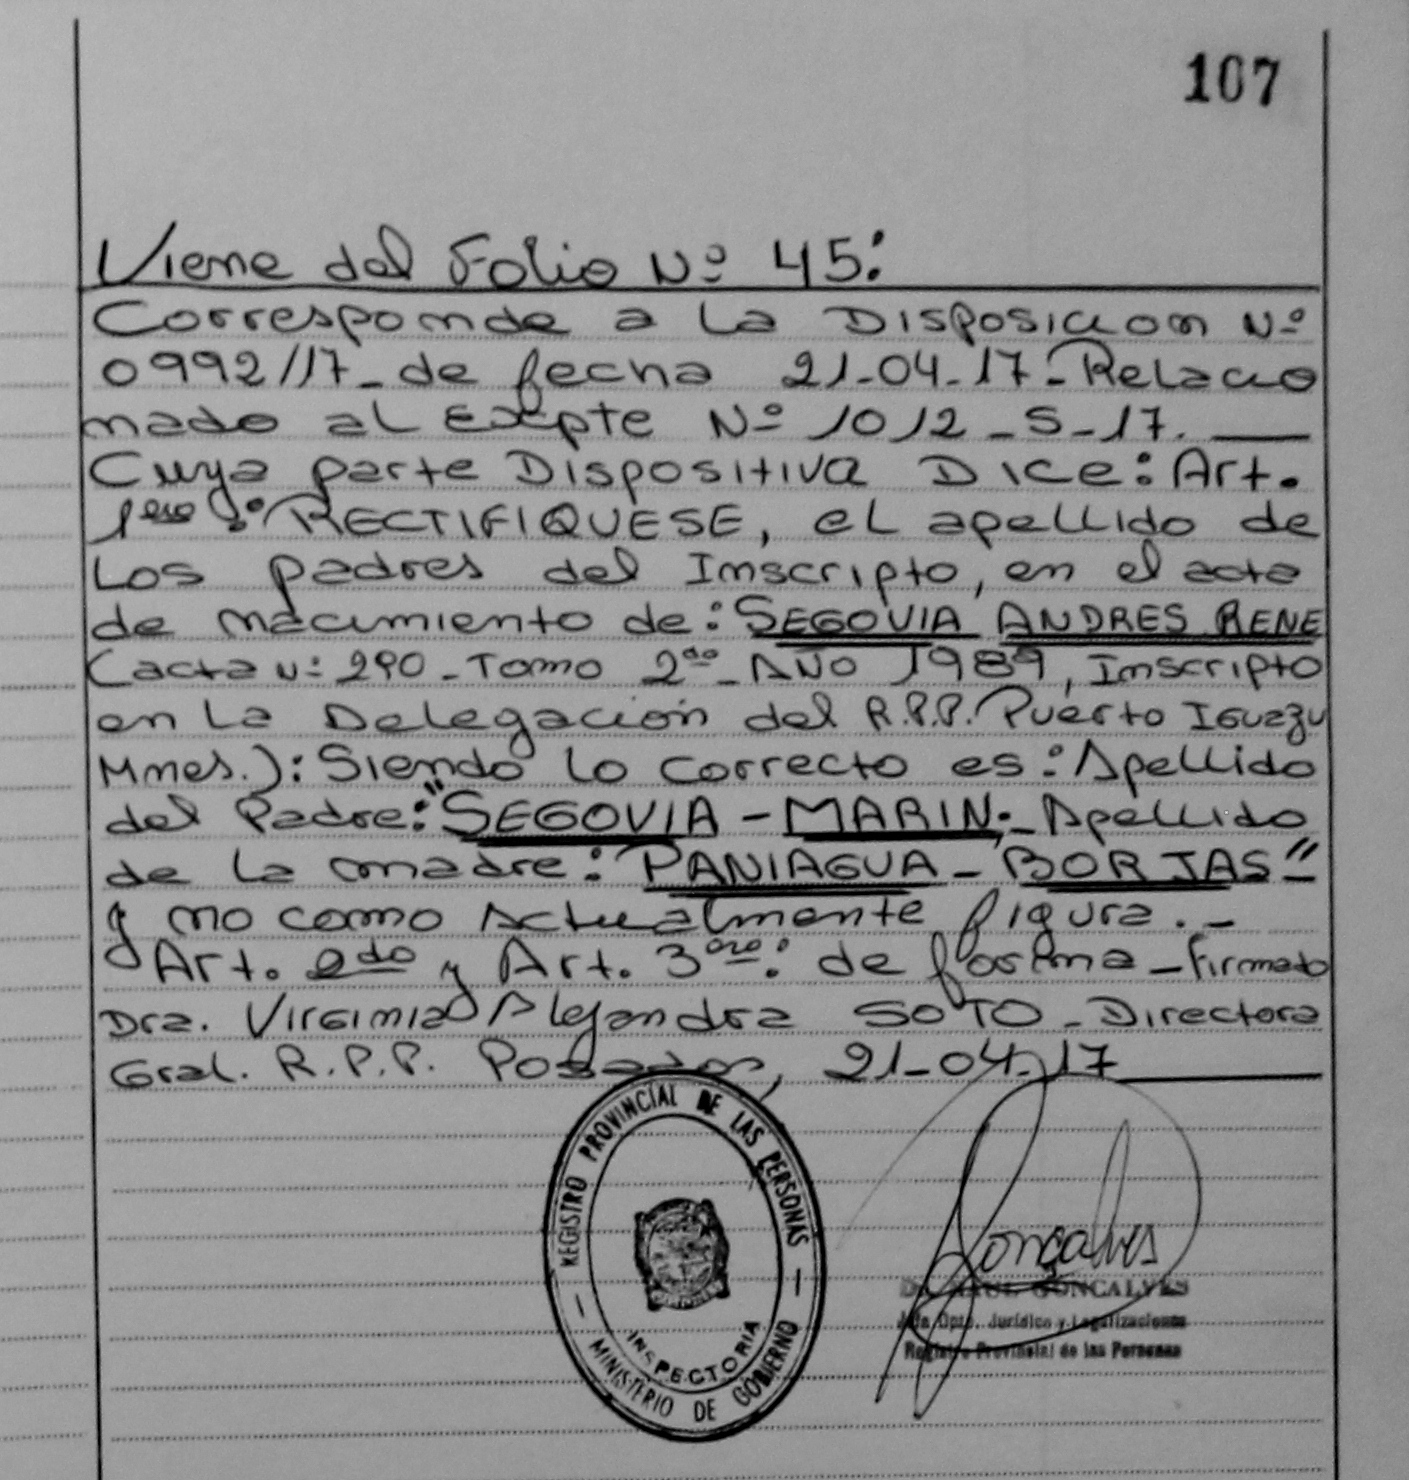 107
Viene del Folio Nº 45:
Corresponde a la Disposicion Nº
0992/17_ de fecha 21-04-17- Relacio
nado al Expte Nº 1012_S-17.
Cuya parte Dispositiva Dice: Art.
1ero: RECTIFIQUESE, el apellido de
Los padres del Inscripto, en el acta
de nacimiento de: SEGOVIA ANDRES RENE
(acta Nº 290_Tomo 2do_AÑO 1989, Inscripto
en la Delegación del R.P.P. Puerto Iguazu
Mnes.): Siendo lo correcto es: Apellido
del Padre: "SEGOVIA - MARIN._Apellido
de la madre: PANIAGUA - BORJAS"
y no como Actualmente figura.-
Art. 2do y Art. 3ero: de forma - Firmado
Dra. Virginia Alejandra SOTO_Directora
Gral. R.P.P. Posadas, 21-04-17
REGISTRO PROVINCIAL DE LAS PERSONAS
INSPECTORIA
MINISTERIO DE GOBIERNO
Gonçalves
GONCALVES
Dpto. Jurídico y Legalizaciones
Registro Provincial de las Personas